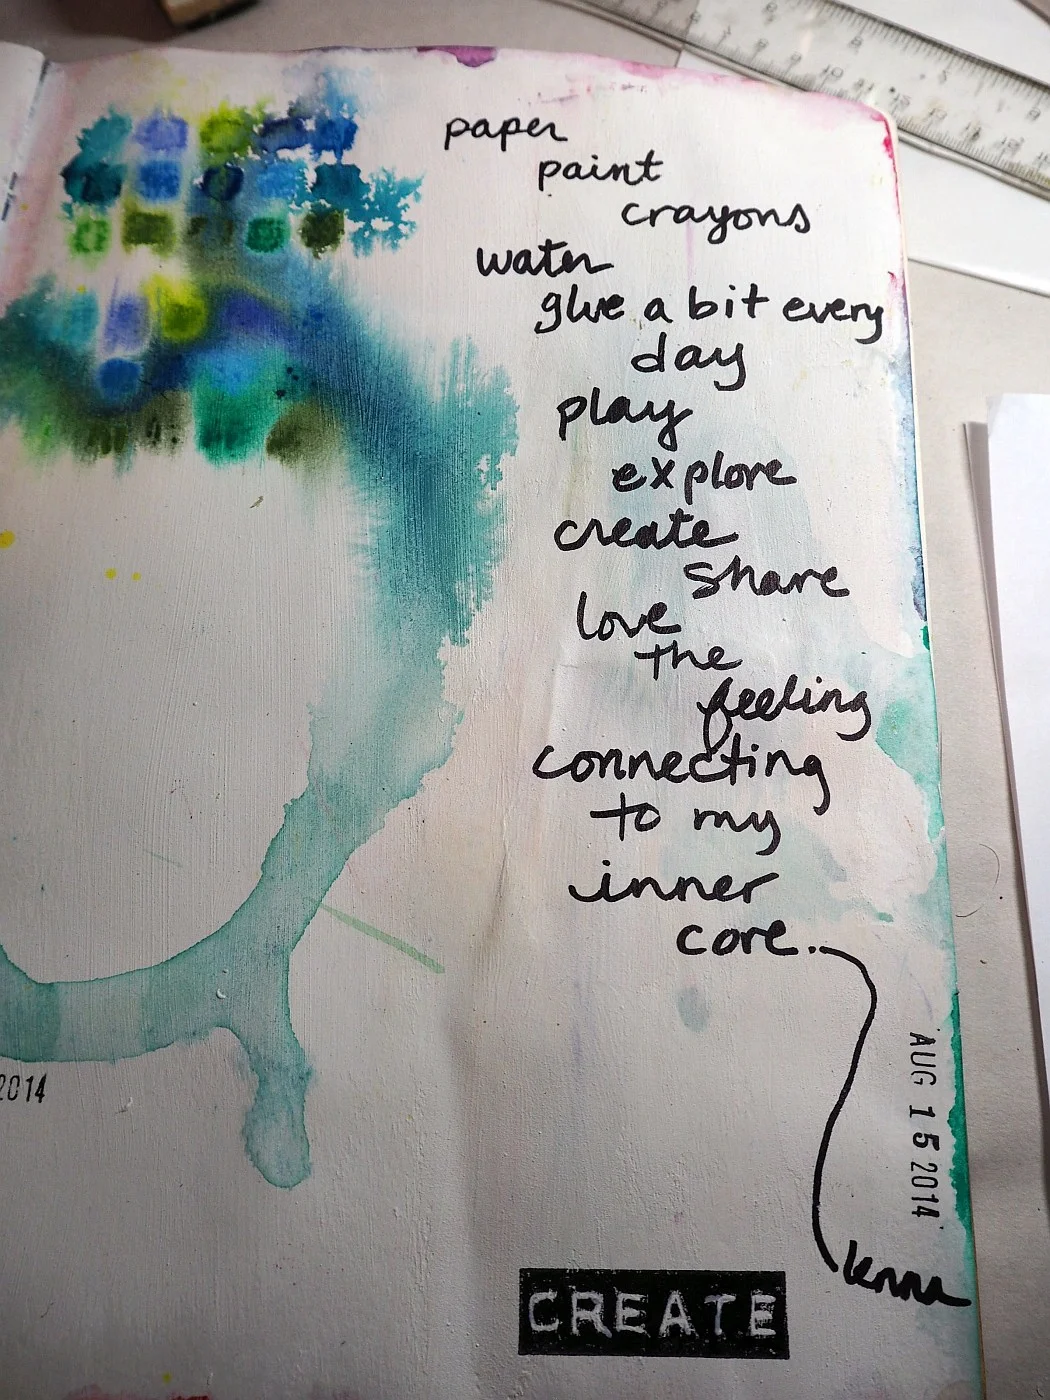 paper
paint
crayons
water
glue a bit every
day
play
explore
create
share
love
the
feeling
connecting
to my
inner
core.
AUG 15 2014
2014
CREATE